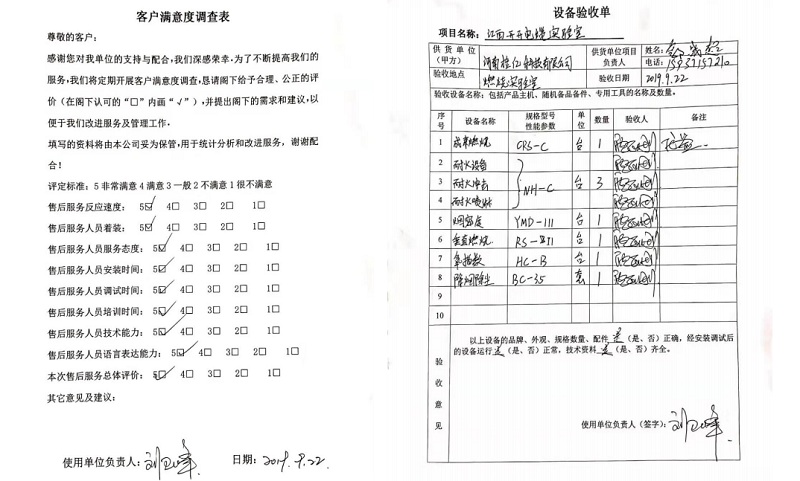 客户满意度调查表
尊敬的客户:
感谢您对我单位的支持与配合,我们深感荣幸.为了不断提高我们的
服务,我们将定期开展客户满意度调查,恳请阁下给予合理、公正的评
价(在阁下认可的"□"内画"√"),并提出阁下的需求和建议,以
便于我们改进服务及管理工作.
填写的资料将由本公司妥为保管,用于统计分析和改进服务,谢谢配
合!
评定标准: 5 非常满意 4 满意 3 一般 2 不满意 1 很不满意
售后服务反应速度: 5☑ 4□ 3□ 2□ 1□
售后服务人员着装: 5☑ 4□ 3□ 2□ 1□
售后服务人员服务态度: 5☑ 4□ 3□ 2□ 1□
售后服务人员安装时间: 5☑ 4□ 3□ 2□ 1□
售后服务人员调试时间: 5☑ 4□ 3□ 2□ 1□
售后服务人员培训时间: 5☑ 4□ 3□ 2□ 1□
售后服务人员技术能力: 5☑ 4□ 3□ 2□ 1□
售后服务人员语言表达能力: 5☑ 4□ 3□ 2□ 1□
本次售后服务总体评价: 5☑ 4□ 3□ 2□ 1□
其它意见及建议:
使用单位负责人: 日期: 2019.9.22
设备验收单
项目名称: 江西 电缆实验室
供货单位(甲方) 供货单位项目负责人 姓名:
电话: 15937157210
验收地点 燃烧实验室 验收日期 2019.9.22
验收设备名称: 包括产品主机、随机备品备件、专用工具的名称及数量.
序号 设备名称 规格型号性能参数 单位 数量 验收人 备注
1 成束燃烧 CRS-C 台 1
2 耐火设备
3 耐火冲击 NH-C 台 3
4 耐火喷淋
5 烟密度 YMD-III 台 1
6 垂直燃烧 台 1
7 HC-B 台 1
8 除烟除尘 BC-35 套 1
9
10
验收意见
以上设备的品牌、外观、规格数量、配件 是 (是、否)正确,经安装调试后
的设备运行 是 (是、否)正常,技术资料 是 (是、否)齐全.
使用单位负责人(签字):